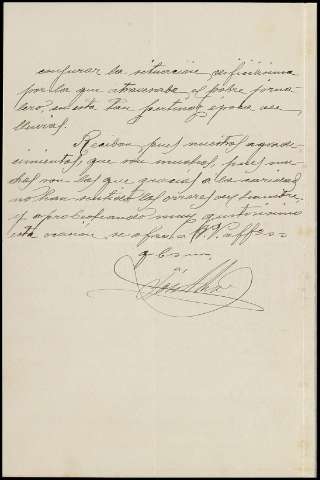 conjurar la situación dificilisima
por la que atravesaba el pobre jorna-
lero, en esta tan pertinaz epoca de
lluvias.
Reciban, pues nuestros agrade-
cimientos, que son muchos, pues mu-
chos son los que gracias a la caridad
no han sentido los orrores del hambre,
y aprobechando muy gustosisimo
esta ocasión se ofrece a V.V. affmo
q b s m.
José